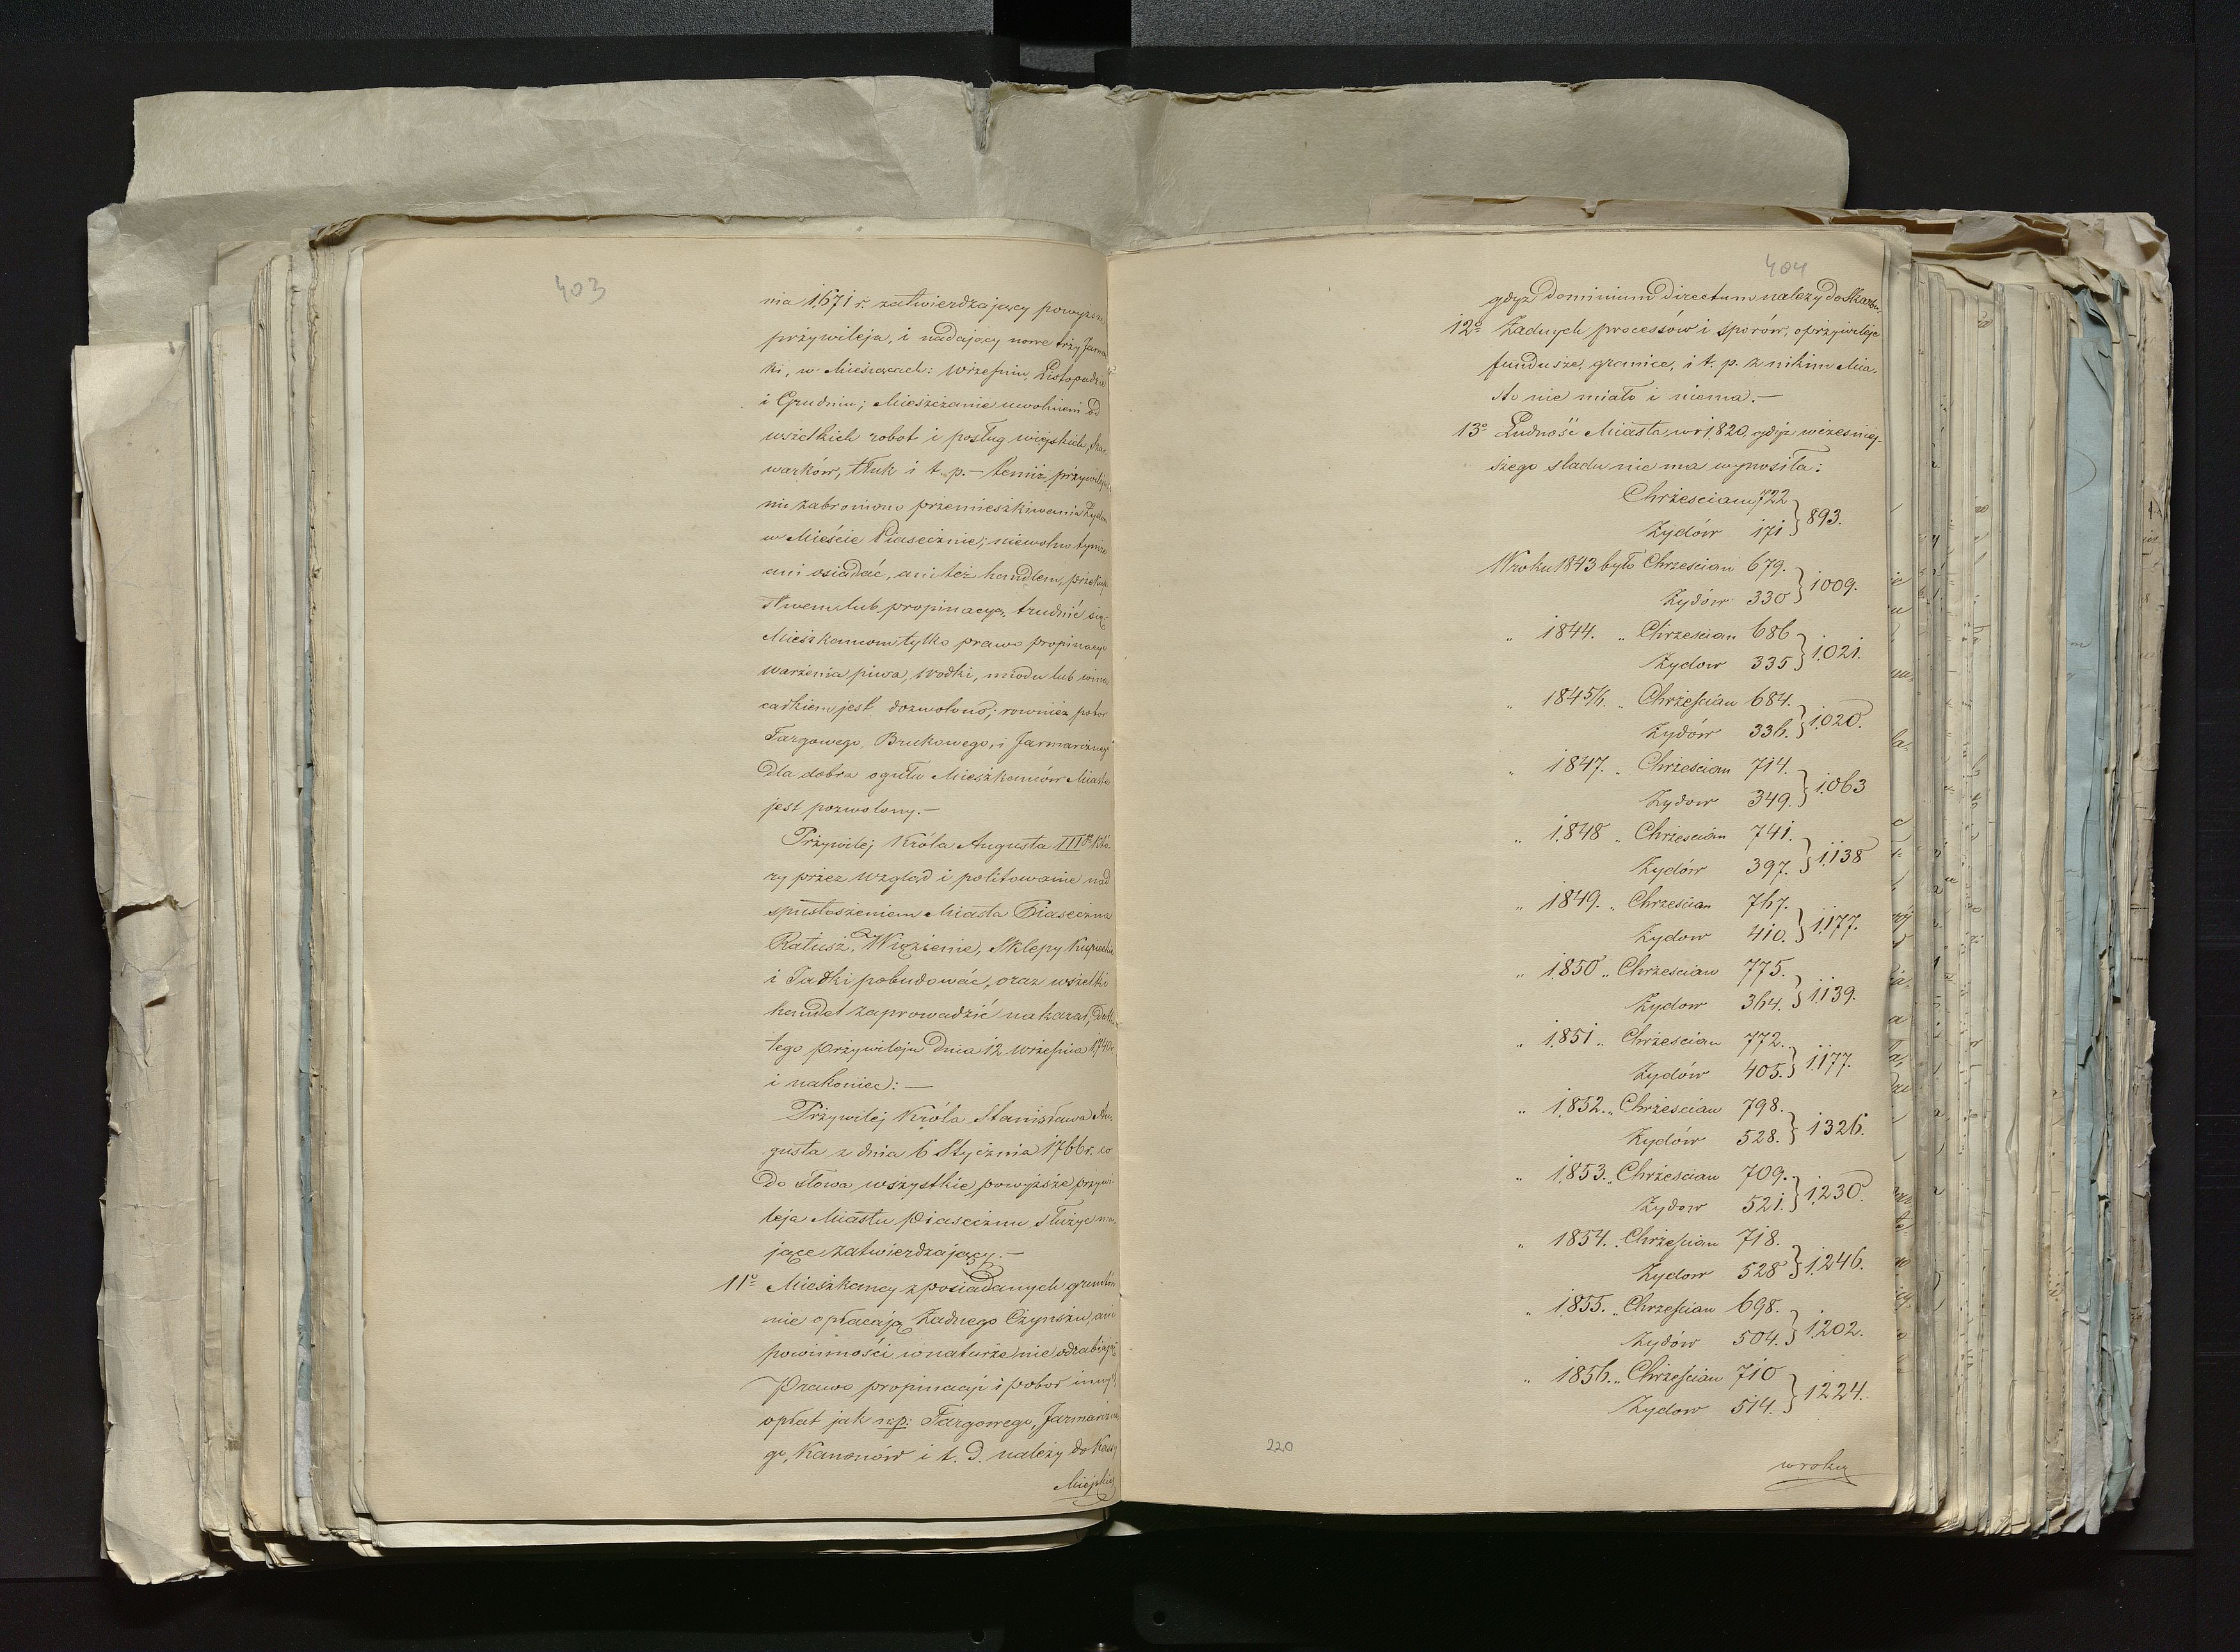 403
nia 1671 r. zatwierdzający powyższe
przywileja, i nadający nowe trzy Jarmar
ki, w Miesiącach: Wrzesniu, Listopadzie
i Grudniu; Mieszczanie uwolnieni od
wszelkich robot i posług wiejskich, sza
warków, tłuk i t. p. — temiż przywileja
mi zabroniono przemieszkiwania Żydom
w Mieście Piasecznie; niewolno tymże
ani osiadać, ani też handlem, przekup
stwem lub propinacyą, trudnić się,
Mieszkańcom tylko prawo propinacyi
warzenia piwa, wodki, miodu lub wina
całkiem jest dozwolono; rownież pobor
Targowego, Brukowego, i Jarmarcznego
dla dobra ogułu Mieszkańców Miasta
jest pozwolony. —
Przywilej Króla Augusta III go któ-
ry przez wzgląd i politowanie nad
spustoszeniem Miasta Piaseczna
Ratusz, Więzienie, Sklepy Kupieckie
i Jadki pobudować, oraz wszelki
handel zaprowadzić nakazał, Data
tego przywileju Dnia 12 Września 1740 r.
i nakoniec: —
Przywilej Króla Stanisława Au-
gusta z dnia 6 Stycznia 1766 r. co
do słowa wszystkie powyższe przywi-
leja Miastu Piasecznu służyć ma-
jące zatwierdzający. —
11o Mieszkancy z posiadanych gruntów
nie opłacają Żadnego Czynszu, ani
powinności w naturze nie odrabiają
Prawo propinacyi i pobor innych
opłat jak np: Targowego, Jarmarczne
go, Kanonów i t. d. należy do Kassy
Miejskiej
404
gdyż dominium directum należy do Skarbu.
12o Żadnych processów i sporów, o przywileje
fundusze, granice, i t. p. z nikim Mia-
sto nie miało i niema. —
13o Ludność Miasta w r 1820, gdyż wcześniej-
szego sladu nie ma wynosiła:
Chrześcian 722
Żydów 171 } 893.
W roku 1843 było Chrzescian 679.
Żydów 330 } 1009.
" 1844. " Chrzescian 686
Żydow 335 } 1021.
" 1845/6. " Chrześcian 684.
Żydów 336. } 1020.
" 1847. " Chrzescian 714.
Żydow 349. } 1063
" 1848 " Chrzescian 741.
Żydów 397. } 1138
" 1849. " Chrzescian 767.
Żydow 410. } 1177.
" 1850 " Chrzescian 775.
Żydow 364. } 1139.
" 1851 " Chrzescian 772.
Żydów 405. } 1177.
" 1852. " Chrzescian 798.
Żydów 528. } 1326.
" 1853. " Chrzescian 709.
Żydow 521. } 1230.
" 1854. " Chrześcian 718.
Żydow 528 } 1246.
" 1855. " Chrześcian 698.
Żydów 504. } 1202.
" 1856. " Chrześcian 710
Żydow 514. } 1224.
220
w roku